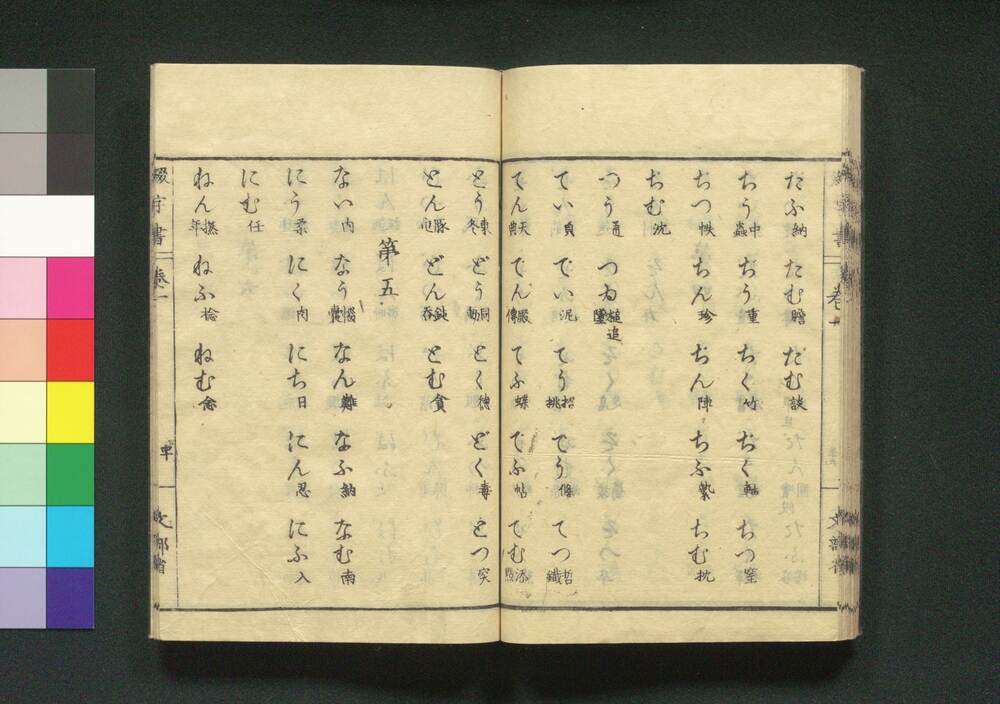 たふ納 たむ贍 だむ談
ちう中蟲 ぢう重 ちく竹 ぢく軸 ちつ窒
ちつ帙 ちん珍 ぢん陳 ちふ蟄 ちむ枕
ぢむ沈
つう通 つゐ槌追墜
てい貞 でい泥 てう招挑 でう條 てつ哲鐵
てん天典 でん殿傳 てふ蝶 でふ帖 てむ添點
とう東冬 どう洞動 とく德 どく毒 とつ突
とん豚屯 どん鈍呑 とむ貪
第五
ない内 なう惱 なん難 なふ納 なむ南
にう柔 にく肉 にち日 にん忍 にふ入
にむ任
ねん撚年 ねふ捻 ねむ念
綴字書 卷一
文部省
綴字書 卷一
文部省